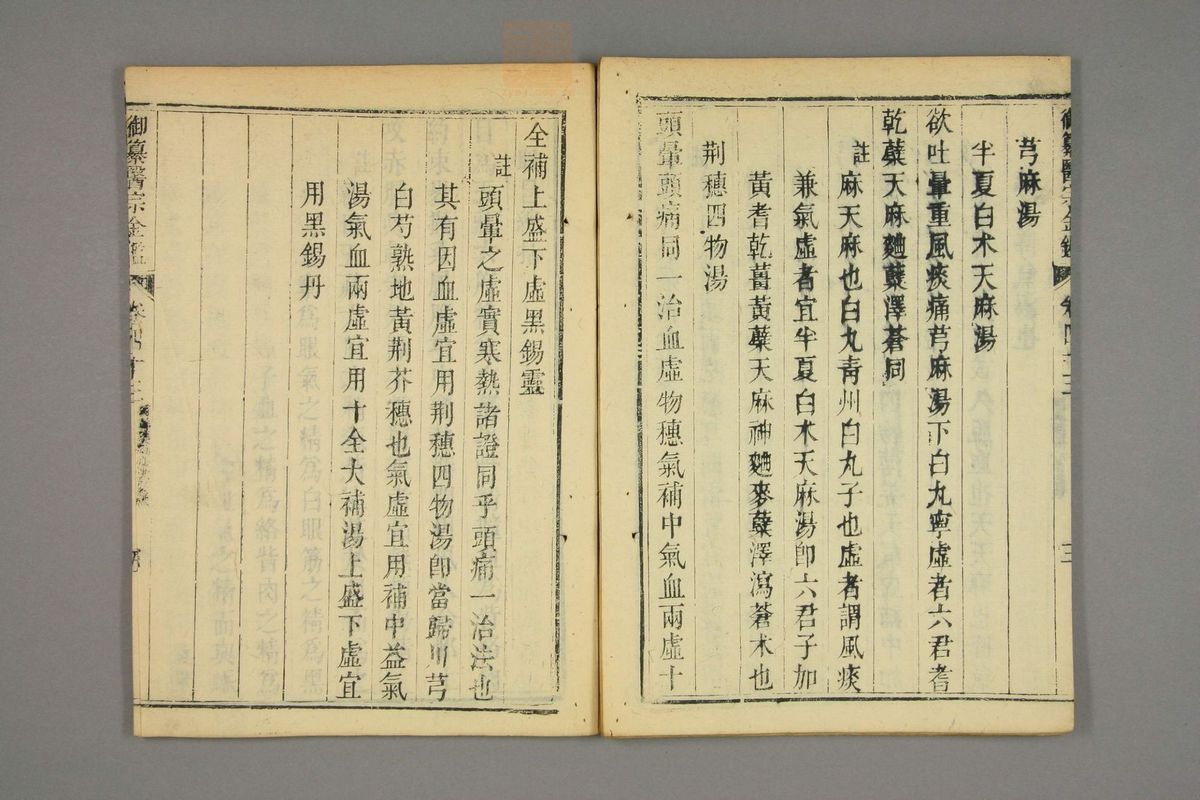 御纂醫宗金鑑 卷四十三 三
芎麻湯
半夏白朮天麻湯
欲吐暈重風痰痛芎麻湯下白丸寧虛者六君耆
乾蘗天麻麯蘖澤蒼同
註
麻天麻也白丸靑州白丸子也虛者謂風痰
兼氣虛者宜半夏白朮天麻湯卽六君子加
黃耆乾薑黃蘗天麻神麯麥蘖澤瀉蒼朮也
荆穗四物湯
頭暈頭痛同一治血虛物穗氣補中氣血兩虛十
全補上盛下虛黑錫靈
註
頭暈之虛實寒熱諸證同乎頭痛一治法也
其有因血虛宜用荆穗四物湯卽當歸川芎
白芍熟地黃荆芥穗也氣虛宜用補中益氣
湯氣血兩虛宜用十全大補湯上盛下虛宜
用黑錫丹
御纂醫宗金鑑